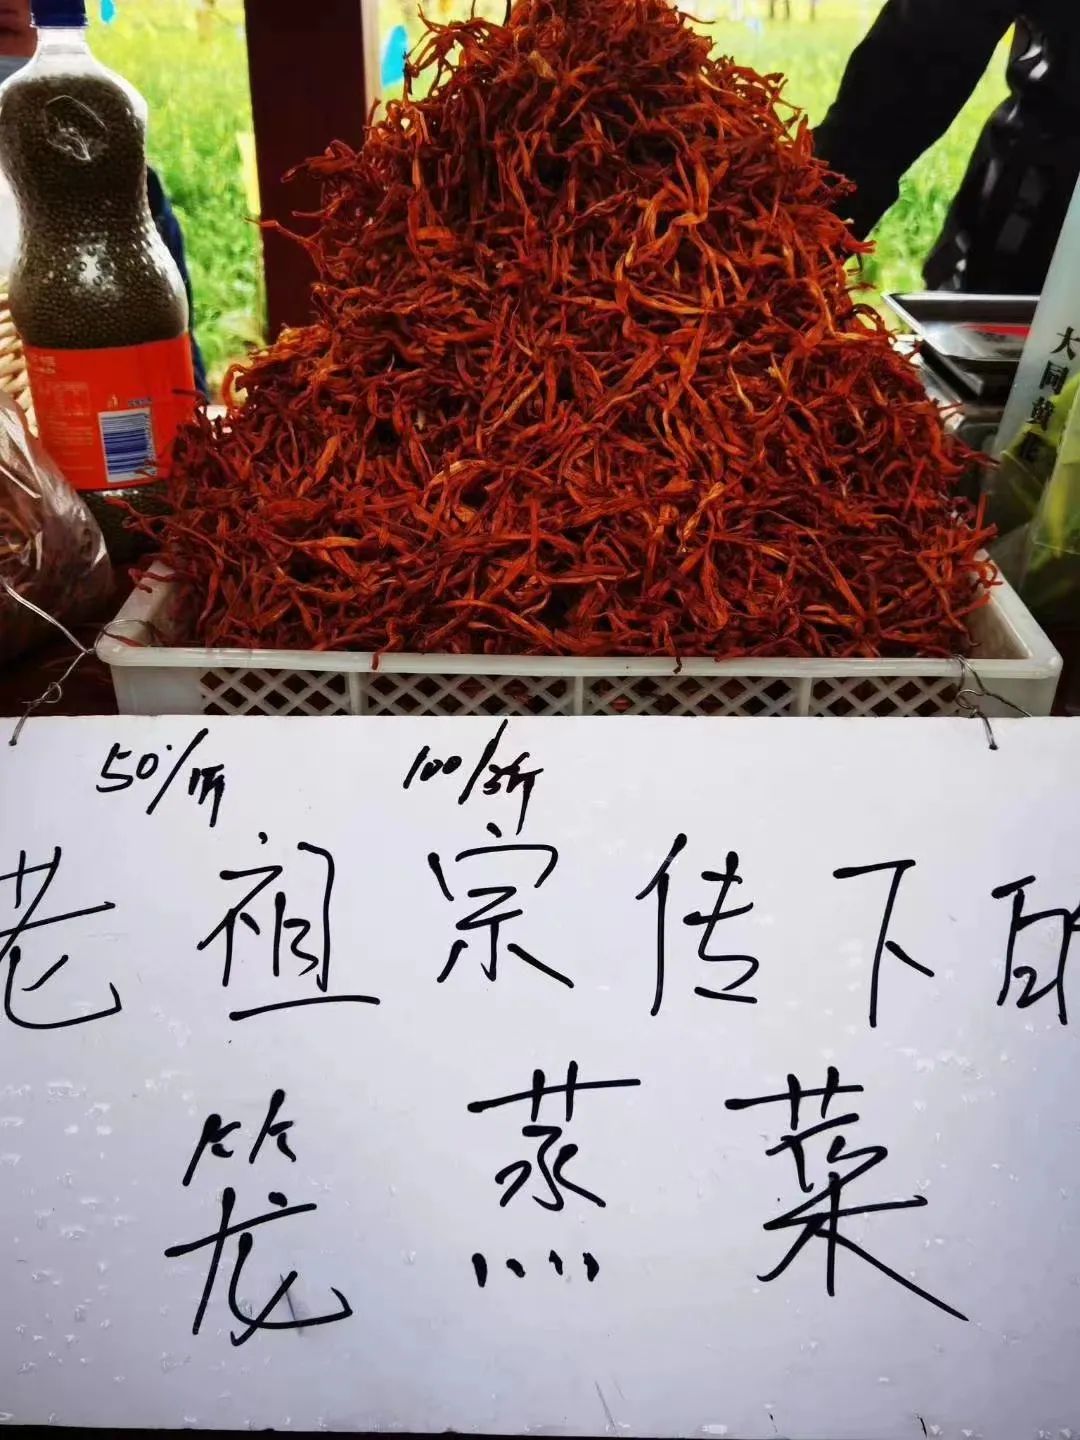 大同黄花
50/1斤 100/3斤
老祖宗传下的
笼蒸菜